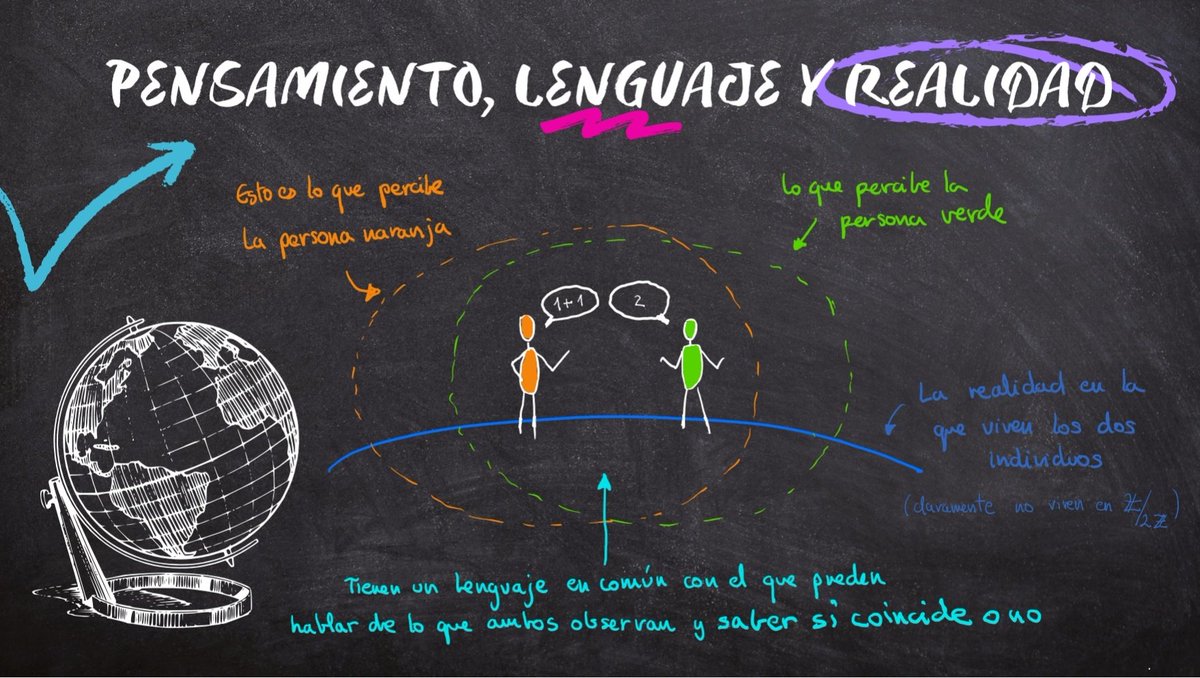 PENSAMIENTO, LENGUAJE Y REALIDAD
Esto es lo que percibe
la persona naranja
lo que percibe la
persona verde
1+1
2
La realidad en la
que viven los dos
individuos
(claramente no viven en Z/2Z)
Tienen un lenguaje en común con el que pueden
hablar de lo que ambos observan y saber si coincide o no